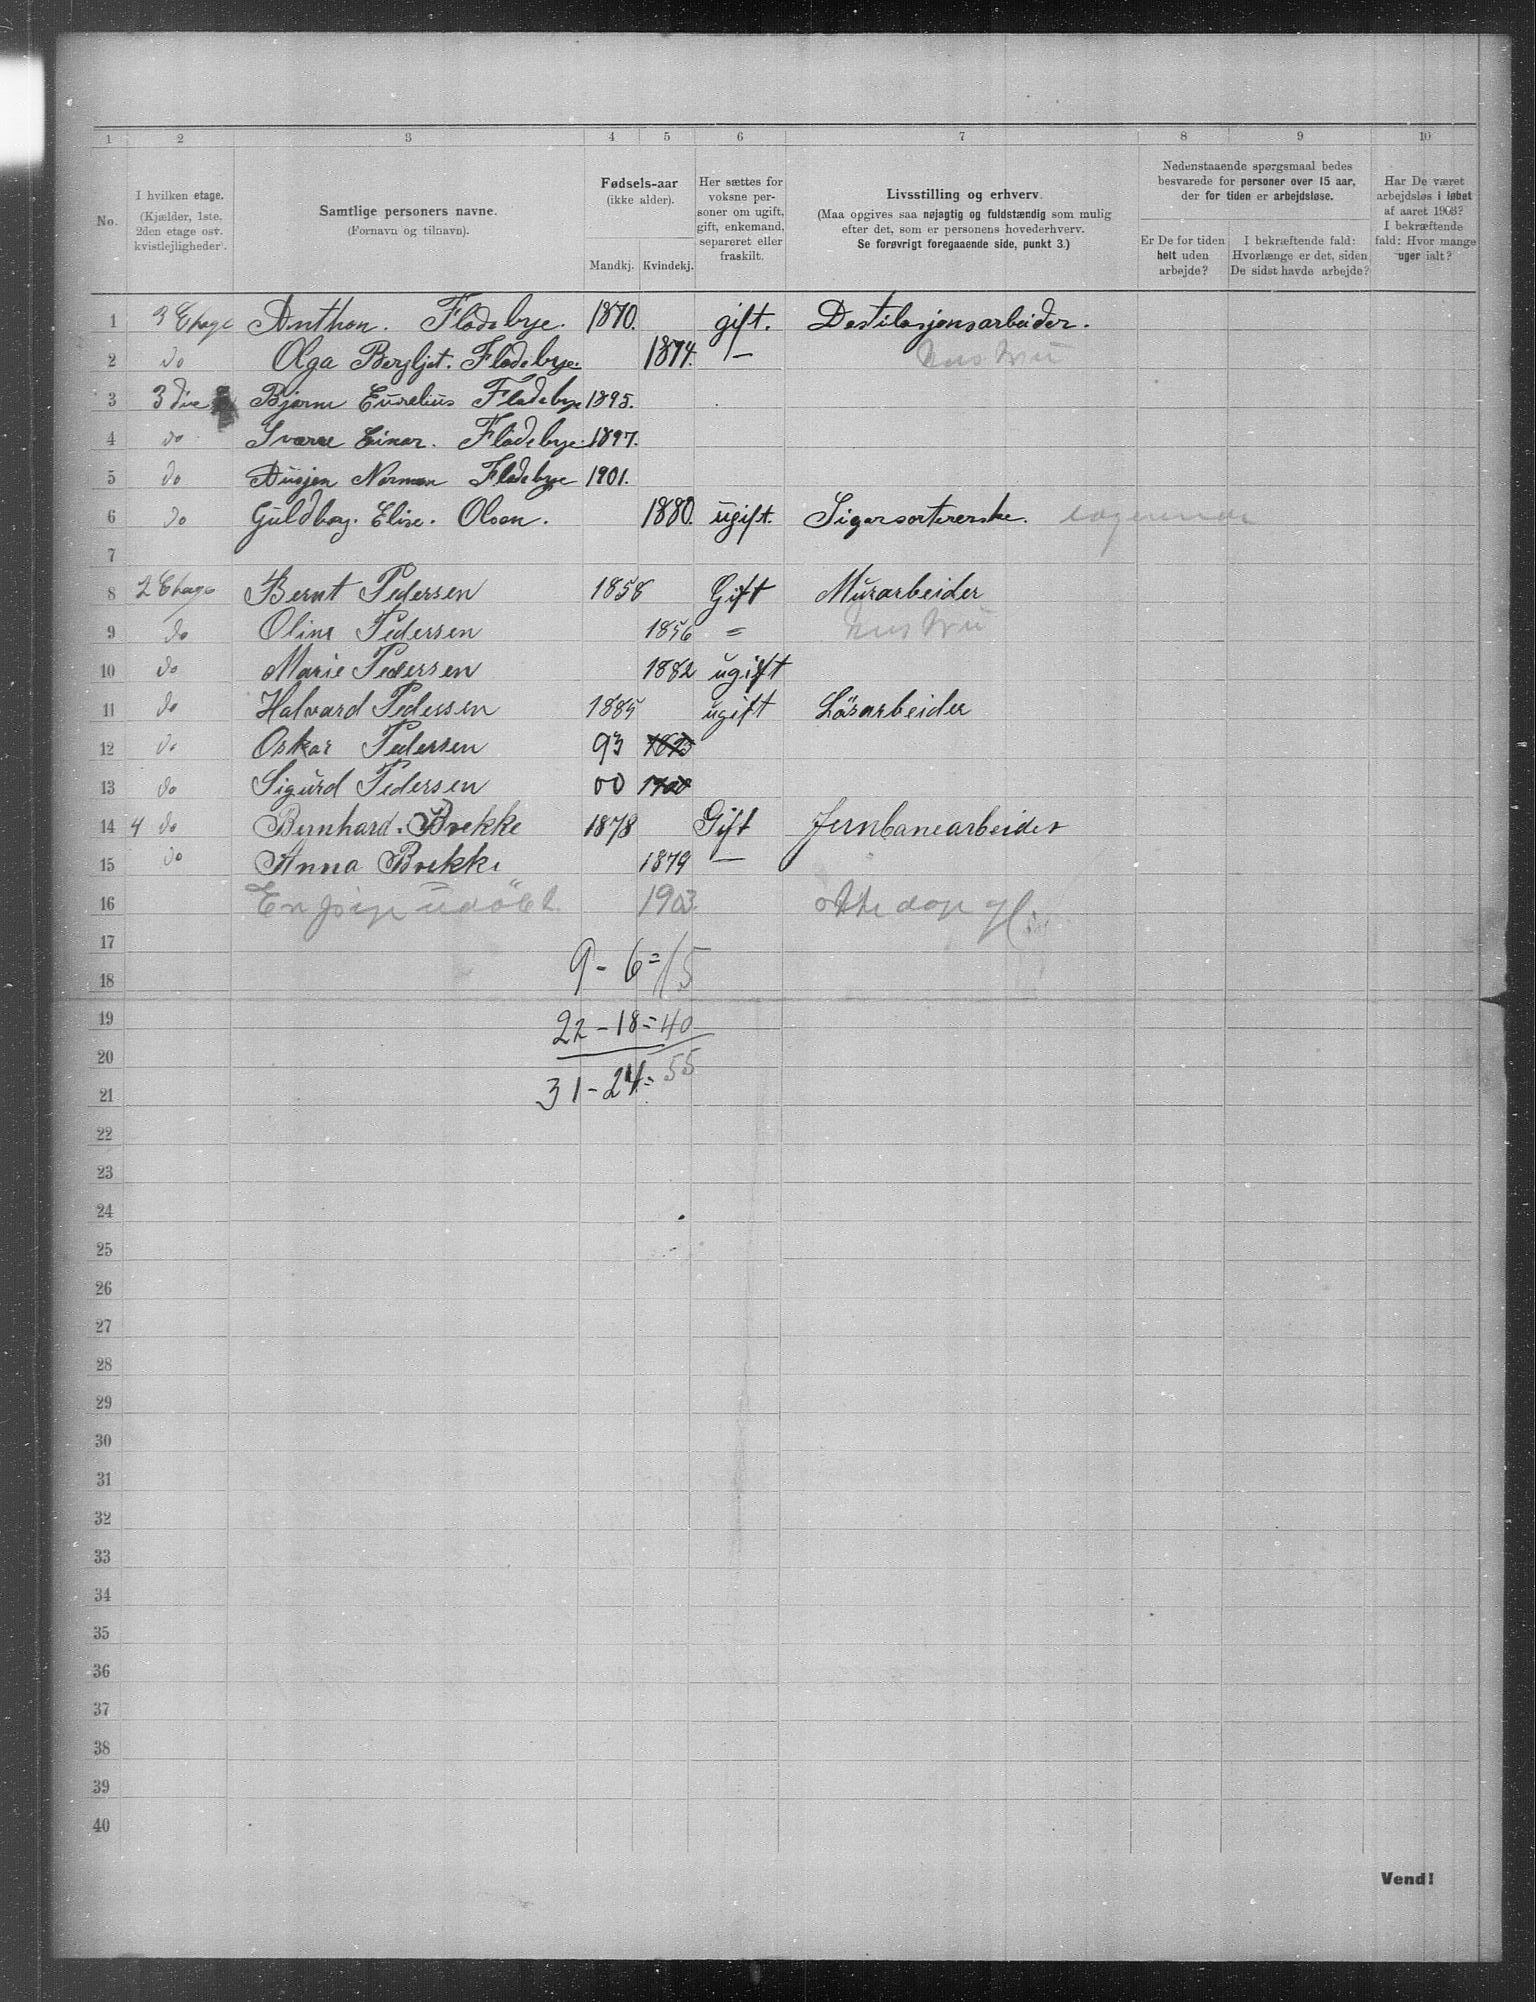 1 2 3 4 5 6 7 8 9 10
No.
I hvilken etage. (Kjælder, 1ste, 2den etage osv. kvistlejligheder).
Samtlige personers navne. (Fornavn og tilnavn).
Fødsels-aar (ikke alder). Mandkj. Kvindekj.
Her sættes for voksne personer om ugift, gift, enkemand, separeret eller fraskilt.
Livsstilling og erhverv. (Maa opgives saa nøjagtig og fuldstændig som mulig efter det, som er personens hovederhverv. Se forøvrigt foregaaende side, punkt 3.)
Nedenstaaende spørgsmaal bedes besvarede for personer over 15 aar, der for tiden er arbejdsløse.
Er De for tiden helt uden arbejde?
I bekræftende fald: Hvorlænge er det, siden De sidst havde arbejde?
Har De været arbejdsløs i løbet af aaret 1903? I bekræftende fald: Hvor mange uger ialt?
1 3 Etage Anthon. Fladebye. 1870. gift. Destilasjonsarbeider.
2 do Olga Bergljot. Fladebye. 1874. — hustru
3 3 Bjarne Eurelius Fladebye 1895.
4 do Sværre Einar. Fladebye. 1897.
5 do Norman Fladebye 1901.
6 do Guldborg. Elise. Olsen. 1880. ugift. Sigarsortererske. logerende
7
8 2 Etage Bernt Pedersen 1858 Gift Murarbeider
9 do Oline Pedersen 1856 = hustru
10 do Marie Pedersen 1882 ugift
11 do Halvard Pedersen 1885 ugift Lösarbeider
12 do Oskar Pedersen 93 1893
13 do Sigurd Pedersen 00 1900
14 4 do Bernhard. Brekke 1878 Gift Jernbanearbeider
15 do Anna Brekke 1879 —
16 En pige udöbt. 1903. otte dage
17
9 - 6 = 15
18
19 22 - 18 = 40
20
31 - 24 = 55
21
22
23
24
25
26
27
28
29
30
31
32
33
34
35
36
37
38
39
40
Vend!